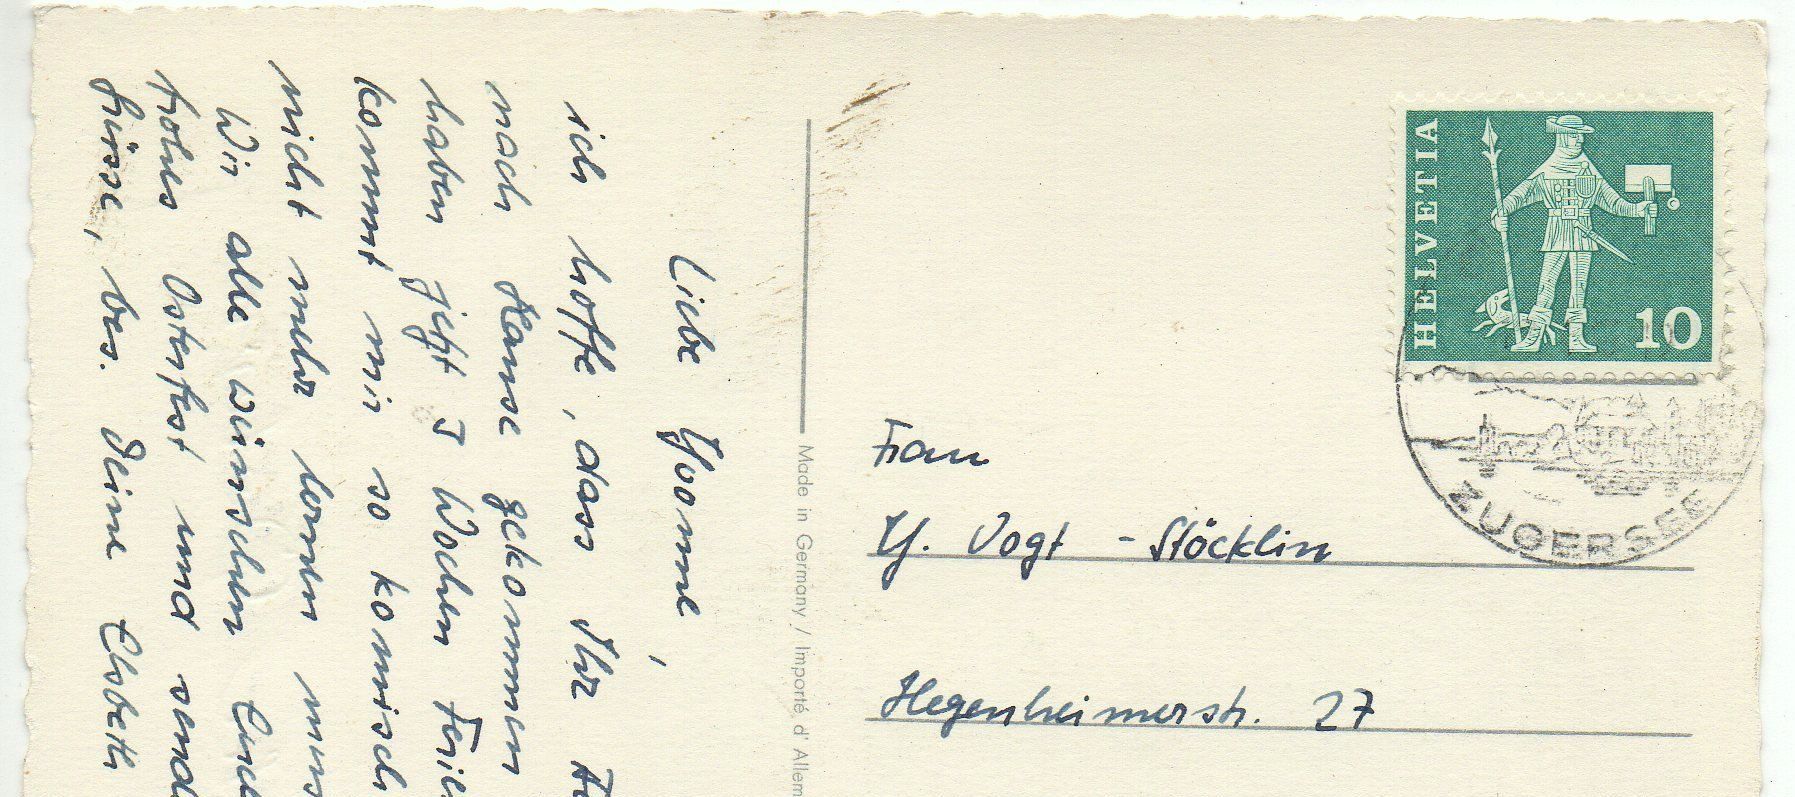 Liebe Yvonne,
ich hoffe, dass Ihr
nach Hause gekommen
haben jetzt 3 Wochen
kommt mir so komisch
nicht mehr lernen
Wir alle wünschen
frohes Osterfest und
Grüsse, bes. Deine Elsbeth
Made in Germany / Importé d'Allem
HELVETIA
10
ZUGERSEE
Frau
Y. Vogt - Stöcklin
Hegenheimerstr. 27